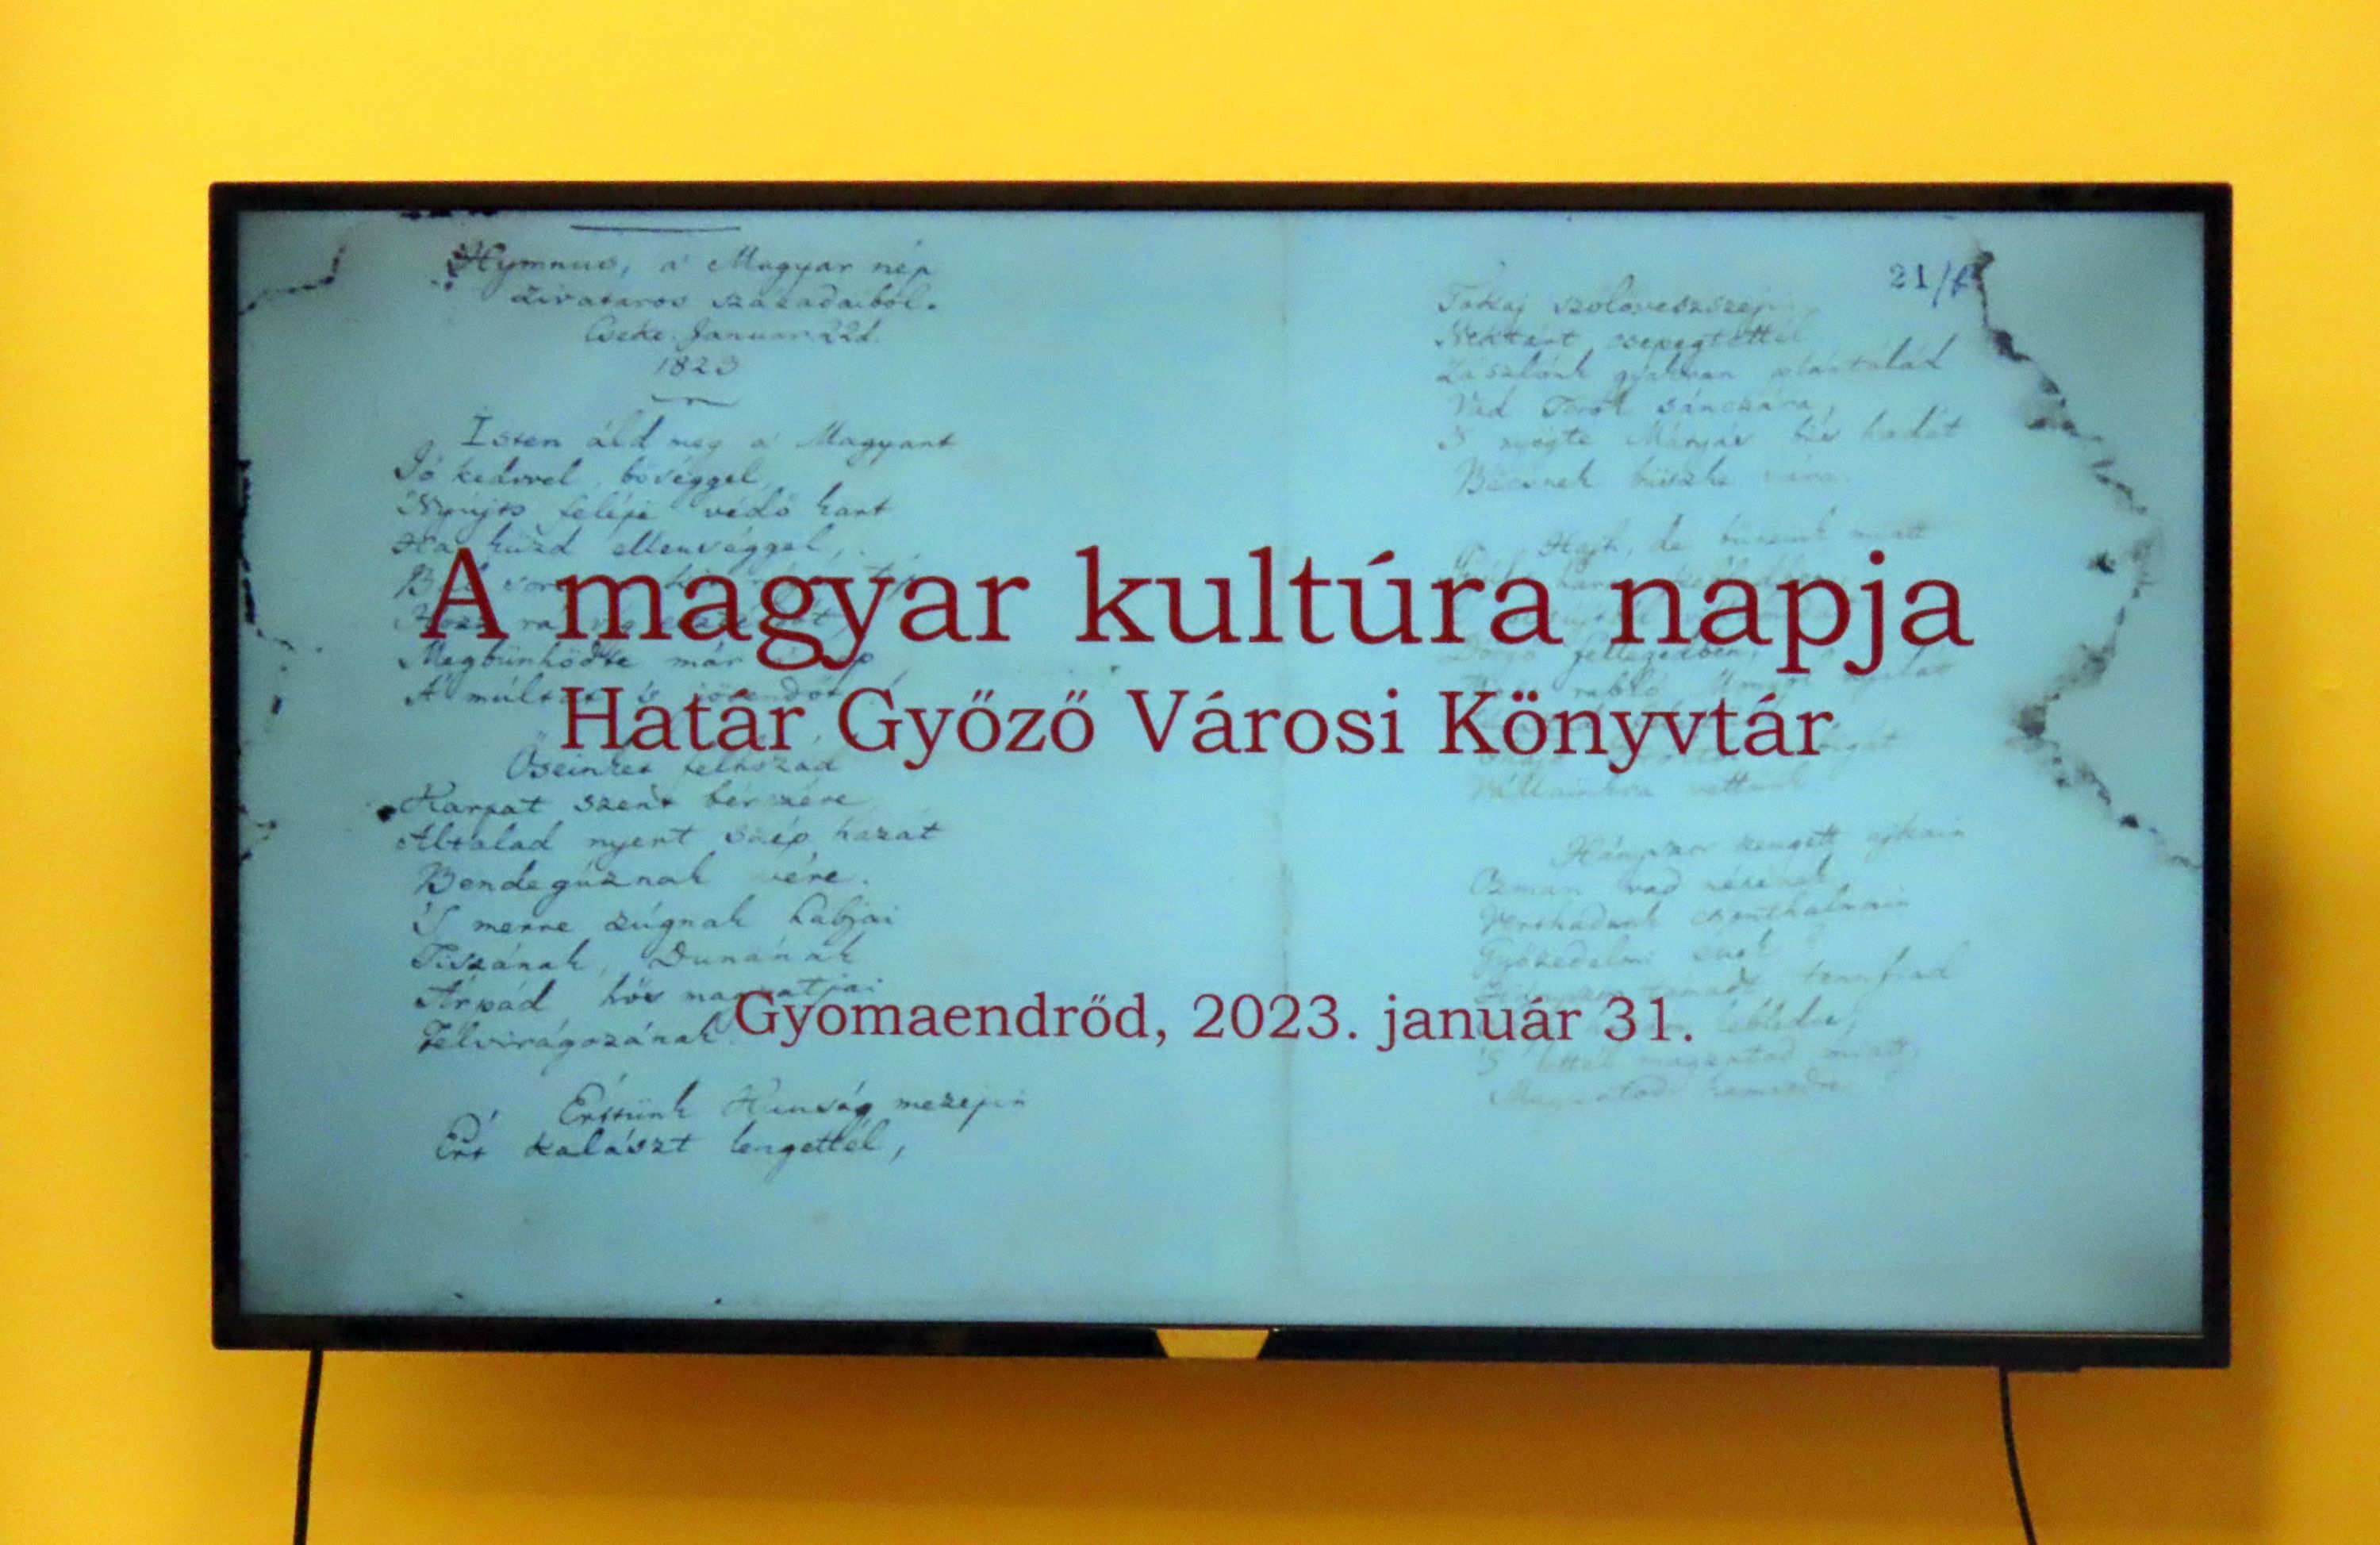 Hymnus, a' Magyar nép
zivataros századaiból.
Cseke. Januar 22d.
1823
Isten áld meg a' Magyart
Jó kedvvel, bőséggel,
Nyújts feléje védő kart
Ha küzd ellenséggel,
Megbünhödte már nép
A' múltat 's jövendőt
Őseinket felhozád
Kárpát szent bérczére
Általad nyert szép hazát
Bendegúznak vére.
'S merre zúgnak habjai
Tiszának, Dunának
Árpád hős magzatjai
Felvirágozának.
Értünk Kunság mezejin
Ért kalászt lengettél,
21/
Tokaj szőlővesszejin
Nektárt csepegtettél
Zászlónk gyakran plántálád
Vad Török sánczára,
'S nyögte Mátyás bús hadát
Bécsnek büszke vára.
Hajh, de bűneink miatt
fellegedben,
rabló
Vállainkra vettünk
Hányszor zengett ajkain
Ozman vad népének
Vert hadunk csonthalmain
Győzedelmi ének
támadt tennfiad
kebledre,
'S lettél magzatod miatt
Magzatod hamvedre
A magyar kultúra napja
Határ Győző Városi Könyvtár
Gyomaendrőd, 2023. január 31.